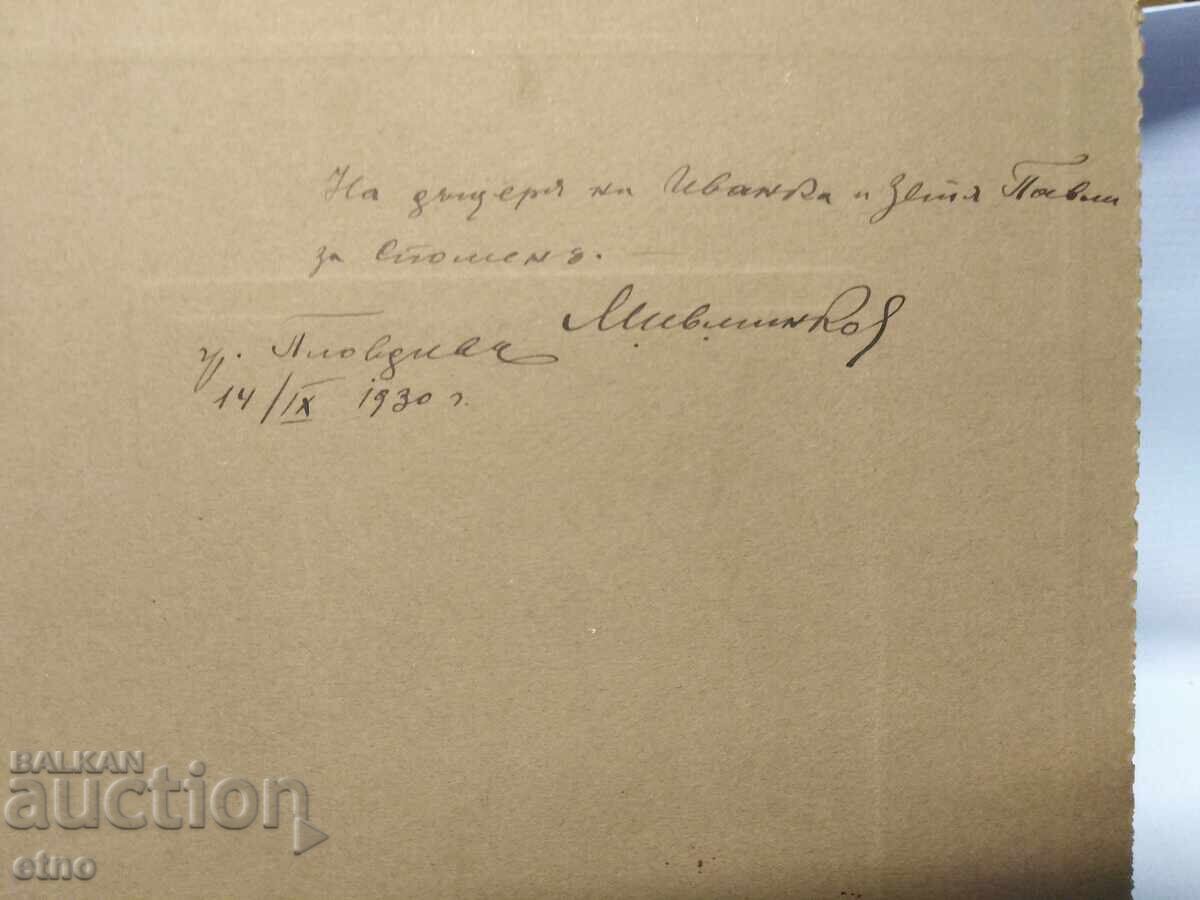 На дъщеря ни Иванка и Зетя Павли
за Споменъ.
гр. Пловдивъ
14/IX 1930 г.
BALKAN
auction
etno